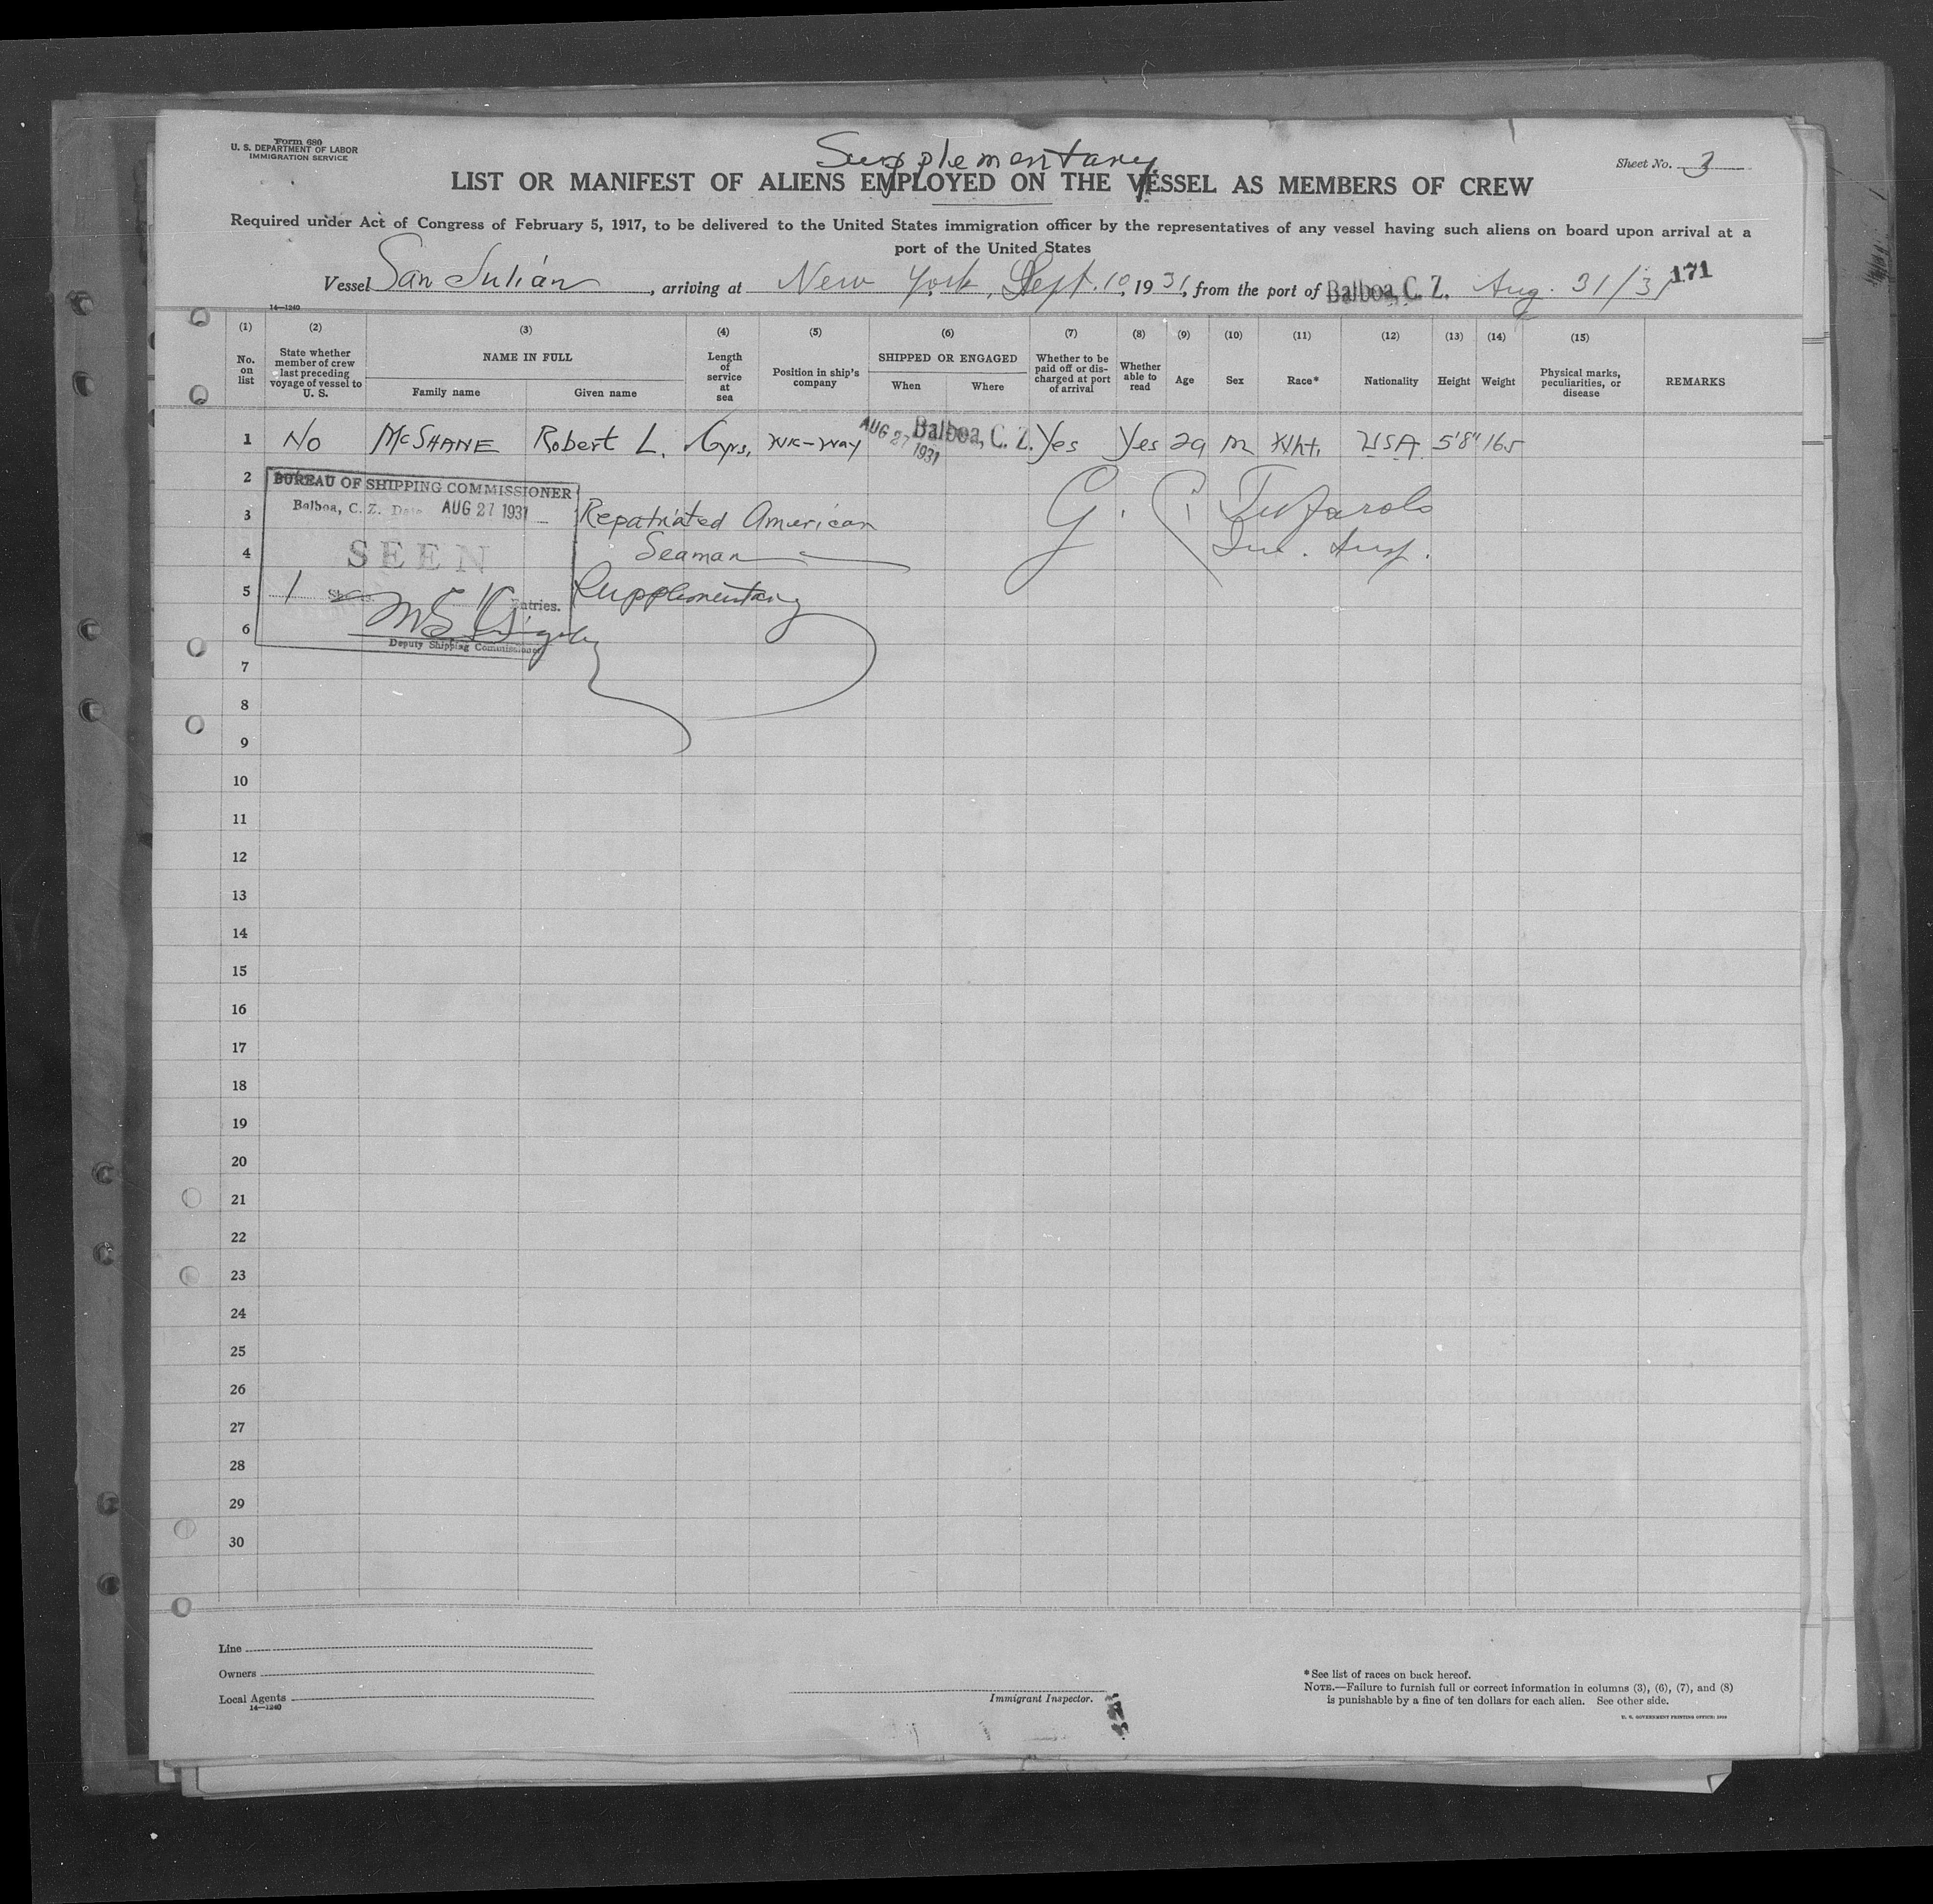 Form 680
U. S. DEPARTMENT OF LABOR
IMMIGRATION SERVICE
Supplementary
Sheet No. 3
LIST OR MANIFEST OF ALIENS EMPLOYED ON THE VESSEL AS MEMBERS OF CREW
Required under Act of Congress of February 5, 1917, to be delivered to the United States immigration officer by the representatives of any vessel having such aliens on board upon arrival at a
port of the United States
Vessel San Julián, arriving at New York, Sept. 10, 1931, from the port of Balboa, C. Z. Aug. 31/31
171
14—1240
(1) (2) (3) (4) (5) (6) (7) (8) (9) (10) (11) (12) (13) (14) (15)
No. on list
State whether member of crew last preceding voyage of vessel to U. S.
NAME IN FULL
Family name
Given name
Length of service at sea
Position in ship's company
SHIPPED OR ENGAGED
When
Where
Whether to be paid off or discharged at port of arrival
Whether able to read
Age
Sex
Race*
Nationality
Height
Weight
Physical marks, peculiarities, or disease
REMARKS
1 No McSHANE Robert L. yrs. WK-Way AUG 27 1931 Balboa, C. Z. Yes Yes 29 M Wht. USA 5'8" 165
2
BUREAU OF SHIPPING COMMISSIONER
3
Balboa, C. Z. Date AUG 27 1931
Repatriated American
4
SEEN
Seaman
5
1 Entries.
Supplimentary
G. P.
Imm. Insp.
6
Deputy Shipping Commissioner
7
8
9
10
11
12
13
14
15
16
17
18
19
20
21
22
23
24
25
26
27
28
29
30
Line
Owners
Local Agents
14—1240
Immigrant Inspector.
*See list of races on back hereof.
NOTE.—Failure to furnish full or correct information in columns (3), (6), (7), and (8)
is punishable by a fine of ten dollars for each alien. See other side.